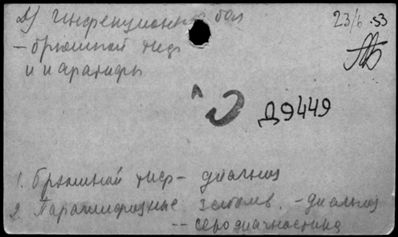 2) Инфекционные бол
23/6.53
- брюшной тиф
и паратифы
АБ
Д9449
1. Брюшной тиф - диагноз
2. Паратифозные заболев. - диагноз
-- серодиагностика